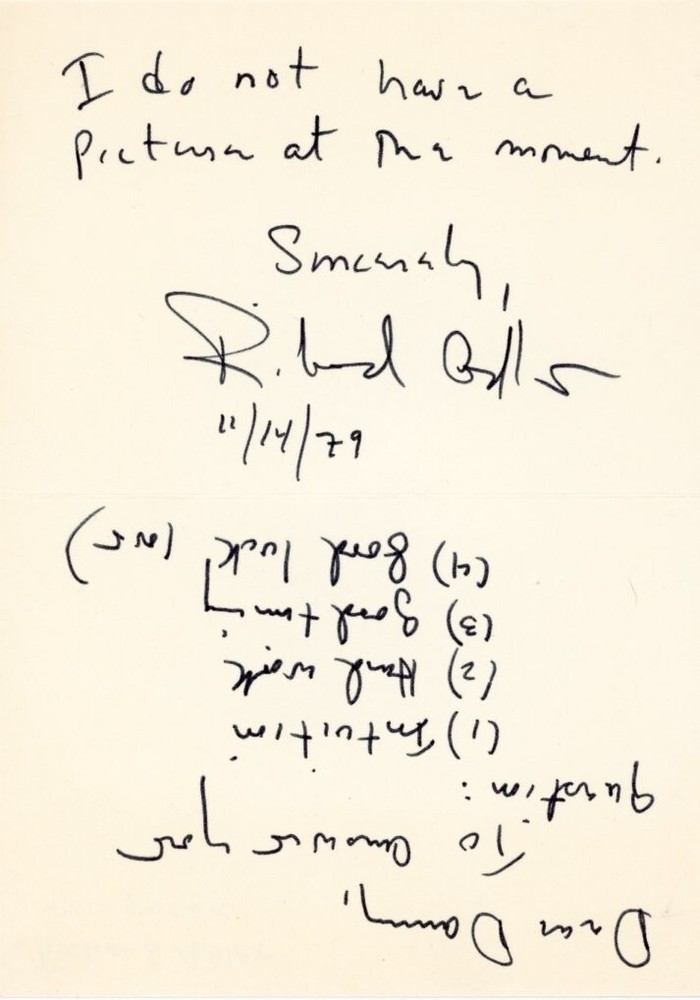 Dear Danny,
To answer your
question:
(1) Intuition
(2) Hard work
(3) Good timing
(4) Good luck (over)
I do not have a
picture at the moment.
Sincerely,
Richard
11/14/79